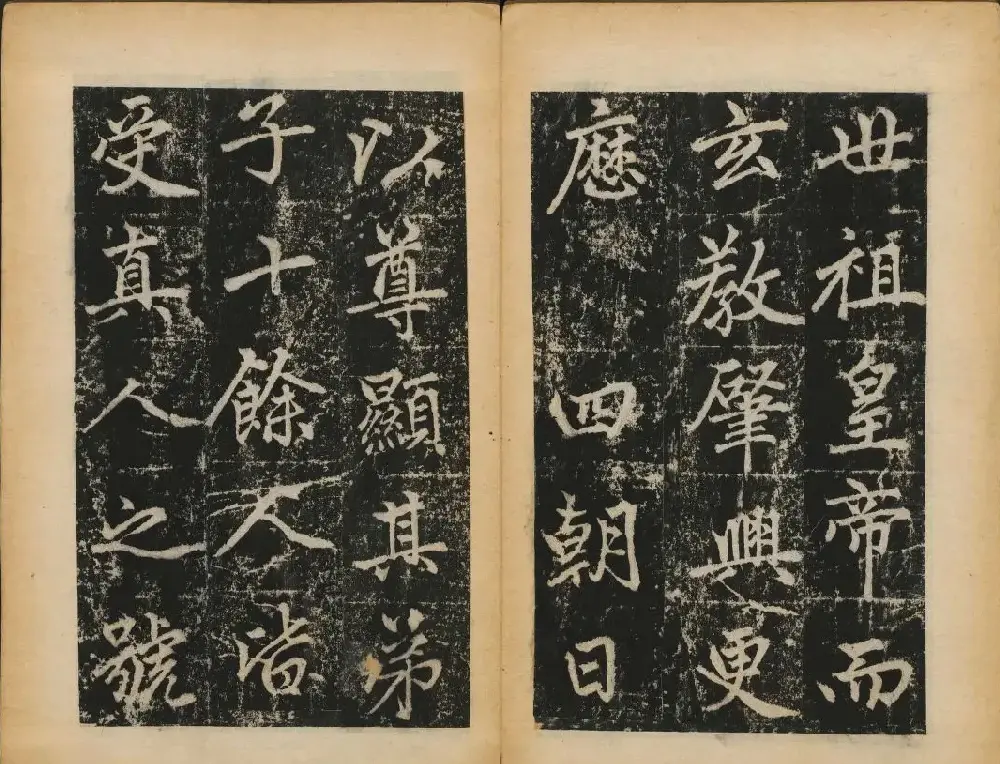 世祖皇帝而
玄教肇興更
歷四朝日
以尊顯其弟
子十餘人
受真人之號